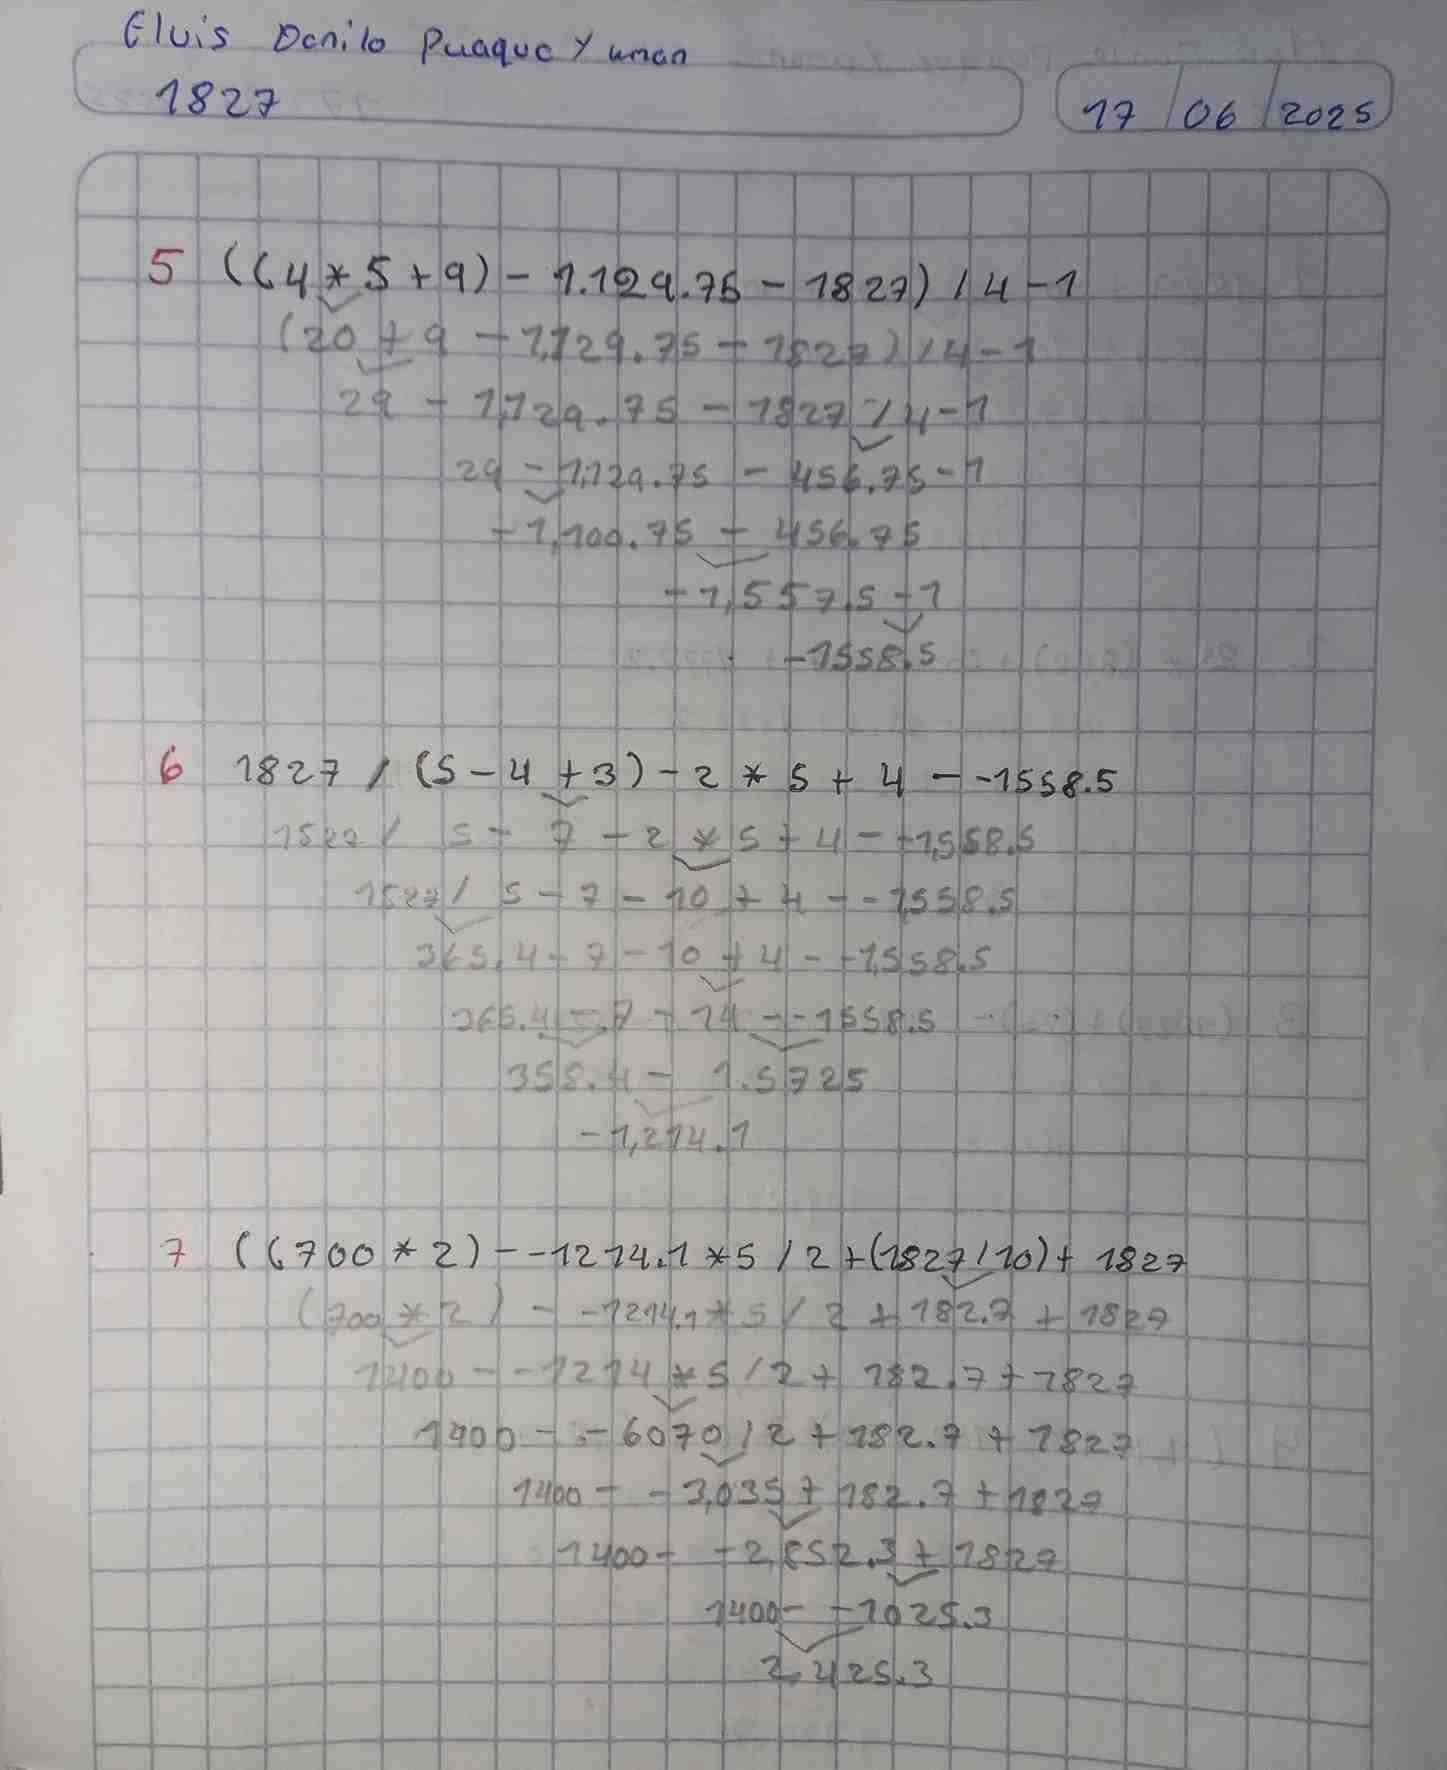 Eluis Danilo Puaque Yuman
1827
17 / 06 / 2025
5 ((4*5+9) - 1.129.75 - 1827) / 4 - 1
(20 + 9 - 1,129.75 - 1827) / 4 - 1
29 - 1,129.75 - 1827 / 4 - 1
29 - 1,129.75 - 456.75 - 1
- 1,100.75 - 456.75
- 1,557.5 - 1
- 1558.5
6 1827 / (5 - 4 + 3) - 2 * 5 + 4 - -1558.5
1527 / 5 - 7 - 2 * 5 + 4 - -1,558.5
1527 / 5 - 7 - 10 + 4 - -1,558.5
365.4 - 7 - 10 + 4 - -1,558.5
365.4 - 7 - 14 - -1558.5
358.4 - 1.5725
- 1,214.1
7 ((700 * 2) - -1214.1 * 5 / 2 + (1827 / 10) + 1827
(700 * 2) - -1214.1 * 5 / 2 + 182.7 + 1827
1400 - -1214 * 5 / 2 + 182.7 + 1827
1400 - - 6070 / 2 + 182.7 + 1827
1400 - - 3,035 + 182.7 + 1827
1400 - - 2,852.3 + 1827
1400 - - 1025.3
2,425.3